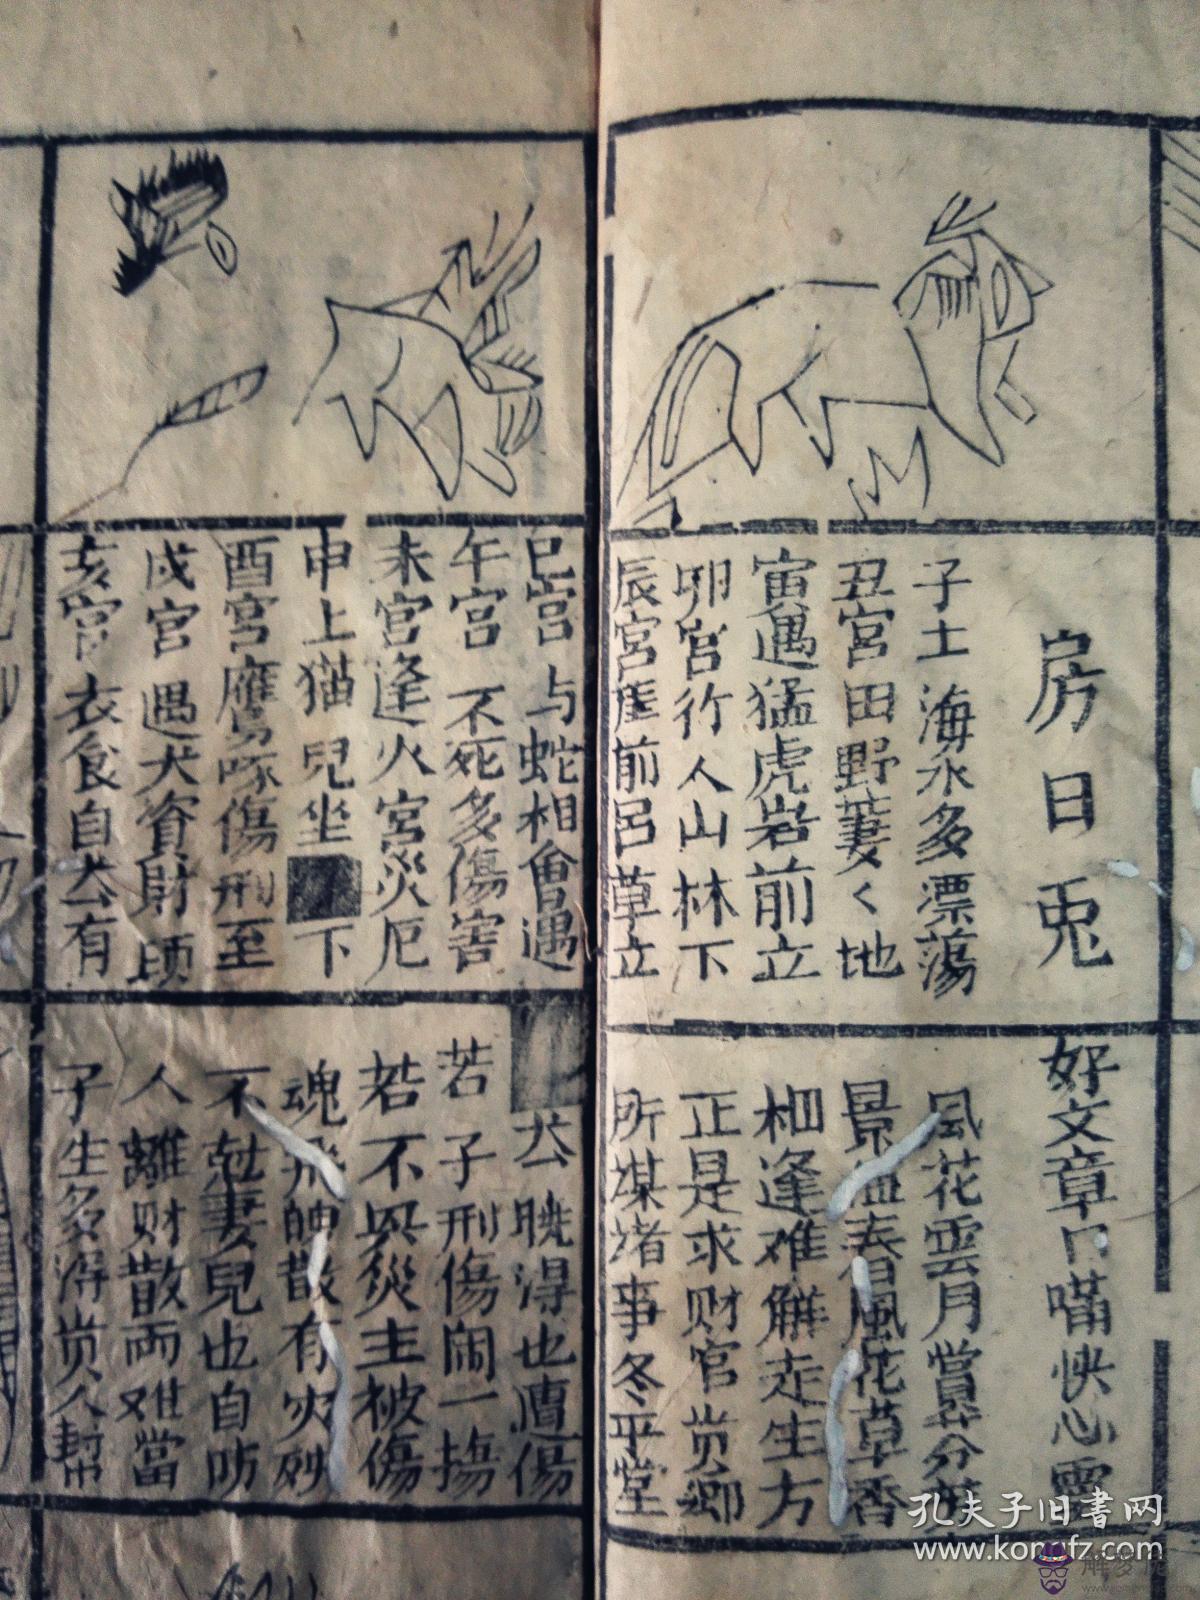 房日兎
子土海水多漂蕩
丑宮田野萋〻地
寅遇猛虎岩前立
卯宮行人山林下
辰宮崖前呂草立
好文章口喃快心靈
風花雲月賞昇分
景血春風花草香
相逢难觧走生方
正是求财官贵鄉
所谋诸事冬平堂
巳宫与蛇相會遇
午宫不死多傷害
未宫逢火宮災厄
申上猫兒坐下
酉宮鷹鳥啄傷刑至
戌宫遇犬資財頃
亥宫衣食自去有
去晓得也遭傷
若子刑傷闹一塲
若不與災主被傷
魂飛魄散有灾殃
不尅妻兒也自妨
人離财散两难當
子生多得贵人幇
孔夫子旧書网
www.kongfz.com
解梦虎